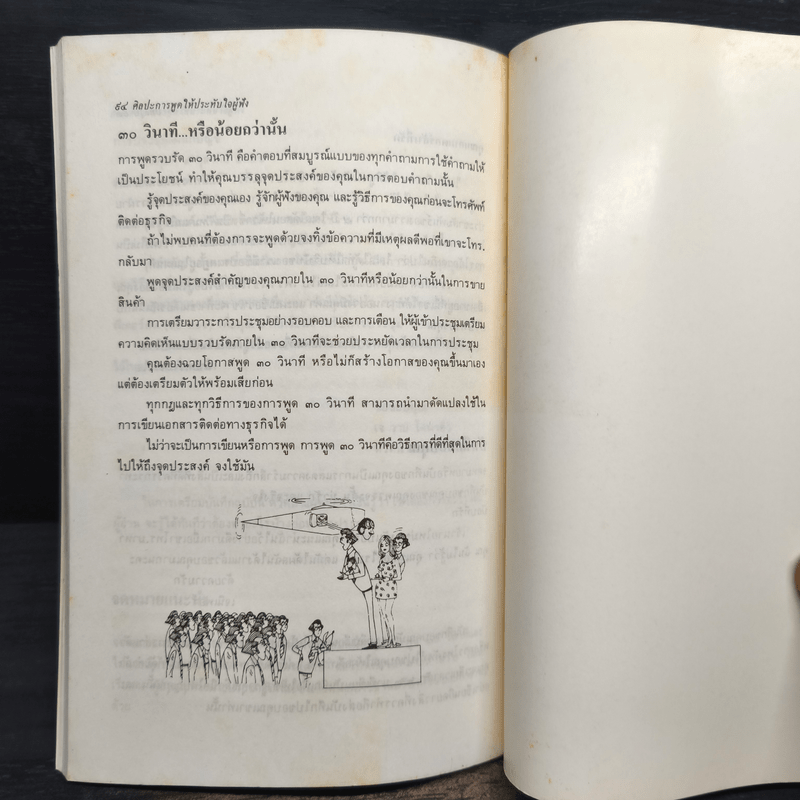 ๙๔ ศิลปะการพูดให้ประทับใจผู้ฟัง
๓๐ วินาที...หรือน้อยกว่านั้น
การพูดรวบรัด ๓๐ วินาที คือคำตอบที่สมบูรณ์แบบของทุกคำถามการใช้คำถามให้
เป็นประโยชน์ ทำให้คุณบรรลุจุดประสงค์ของคุณในการตอบคำถามนั้น
รู้จุดประสงค์ของคุณเอง รู้จักผู้ฟังของคุณ และรู้วิธีการของคุณก่อนจะโทรศัพท์
ติดต่อธุรกิจ
ถ้าไม่พบคนที่ต้องการจะพูดด้วยจงทิ้งข้อความที่มีเหตุผลดีพอที่เขาจะโทร.
กลับมา
พูดจุดประสงค์สำคัญของคุณภายใน ๓๐ วินาทีหรือน้อยกว่านั้นในการขาย
สินค้า
การเตรียมวาระการประชุมอย่างรอบคอบ และการเตือน ให้ผู้เข้าประชุมเตรียม
ความคิดเห็นแบบรวบรัดภายใน ๓๐ วินาทีจะช่วยประหยัดเวลาในการประชุม
คุณต้องฉวยโอกาสพูด ๓๐ วินาที หรือไม่ก็สร้างโอกาสของคุณขึ้นมาเอง
แต่ต้องเตรียมตัวให้พร้อมเสียก่อน
ทุกกฎและทุกวิธีการของการพูด ๓๐ วินาที สามารถนำมาดัดแปลงใช้ใน
การเขียนเอกสารติดต่อทางธุรกิจได้
ไม่ว่าจะเป็นการเขียนหรือการพูด การพูด ๓๐ วินาทีคือวิธีการที่ดีที่สุดในการ
ไปให้ถึงจุดประสงค์ จงใช้มัน